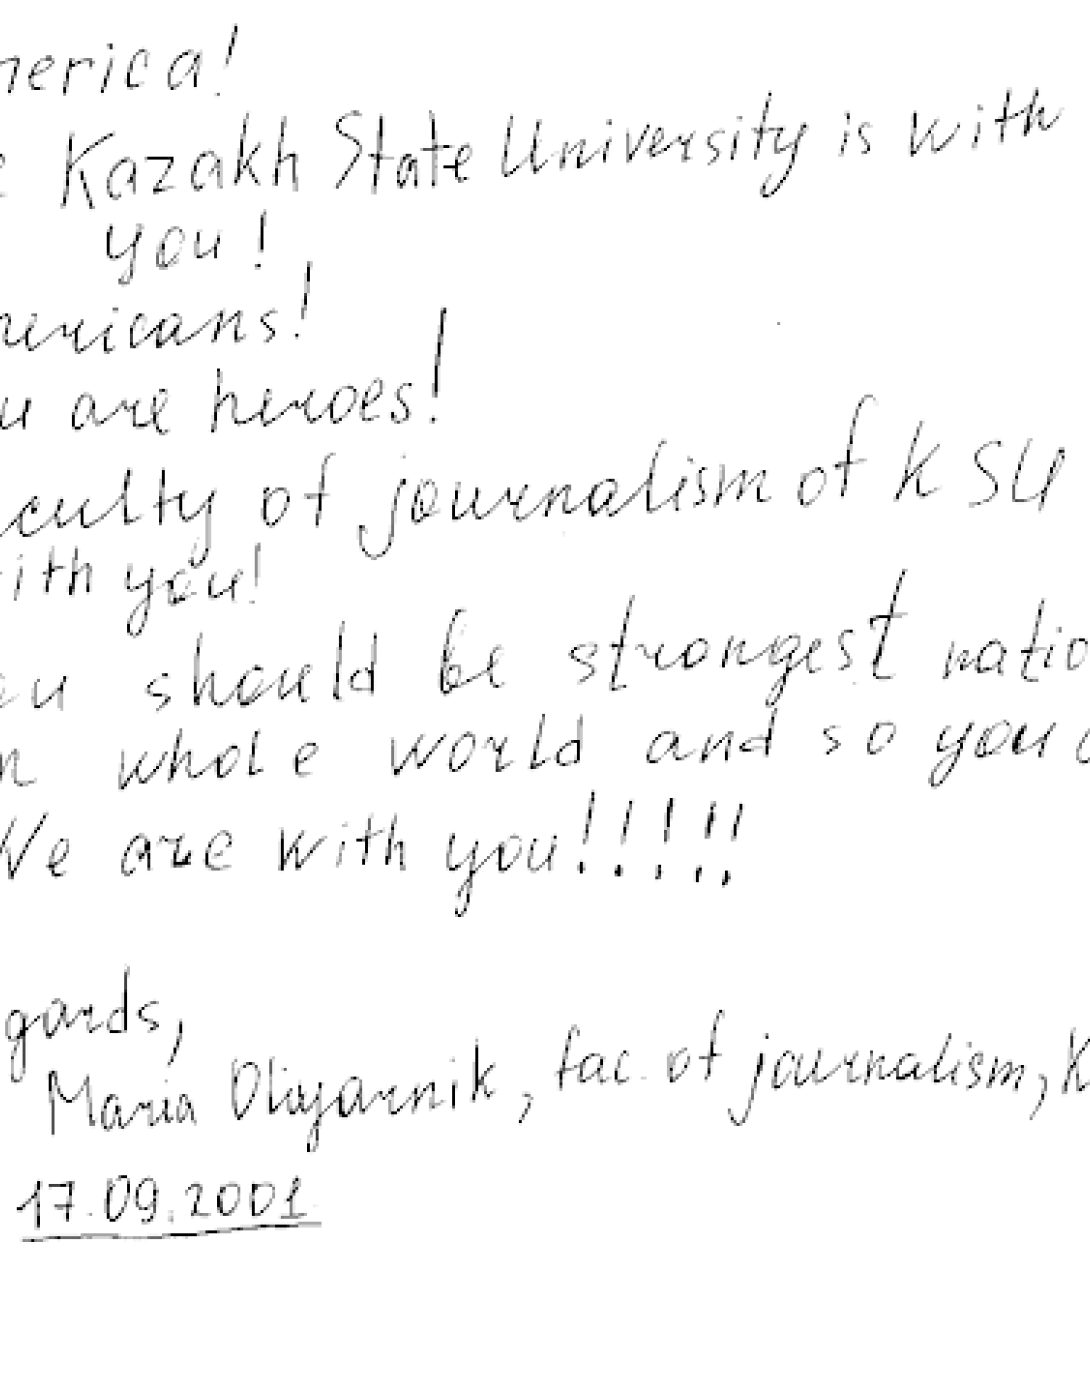 merica!
Kazakh State University is with
you!
mericans!
u are heroes!
culty of journalism of KSU
ith you!
ou should be strongest natio
n whole world and so you
We are with you!!!!!
gards,
Maria Oliyarnik, fac. of journalism, K
17.09.2001